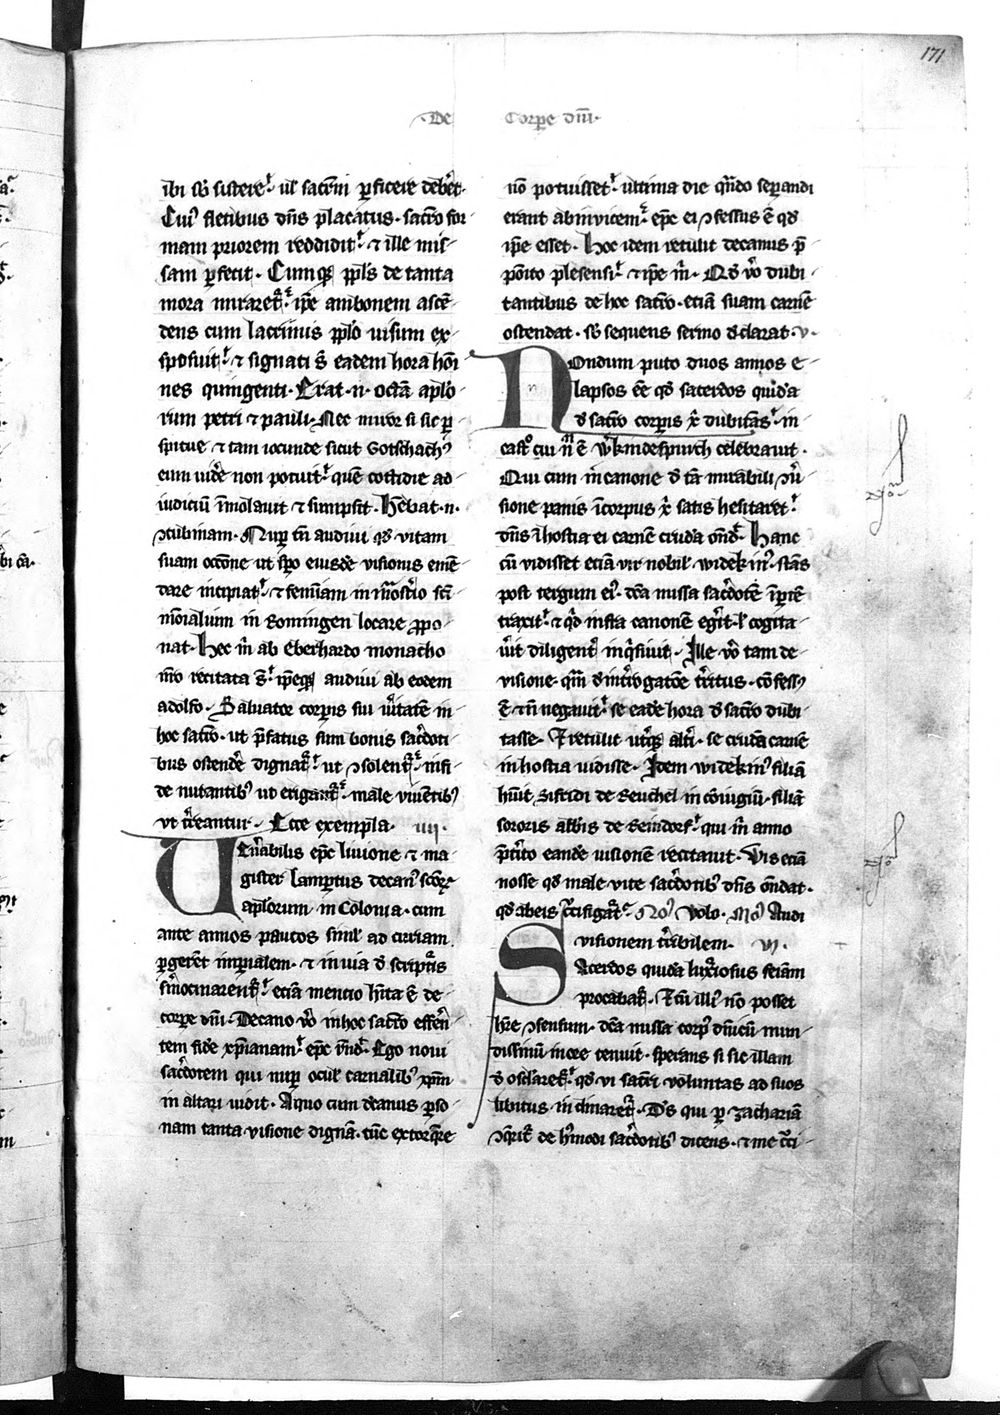 171
De Corpe dñi·
ibi sb̾ sistere᷑· ul̾ sacr̃m ꝑficere deber̃et·
Cui᷒ fletibus dñs placatus· sacr̃o for-
mam priorem reddidit· ⁊ ille mis-
sam ꝑfecit· Cumqꝫ ppl̾s de tanta
mora mirar̃et᷑· ip̃e ambonem ascẽ-
dens cum lacrimis ppl̾o uisum ex-
sposuit· ⁊ signati s̃ eadem hora hoĩ-
nes quingenti· Erat· n· octã apl̾o-
rum petri ⁊ pauli· Nec miror si sic ꝑ-
spicue ⁊ tam iocunde sicut Gotschach᷒
eum uid̾e non potuit· quẽ cottidie ad
iudiciũ ĩmolauit ⁊ sumpsit· Hẽbat· n·
ꝯcubinam· Nuꝑ tñ audiui qd̾ vitam
suam occõne ut spo eiusdẽ visionis emẽ-
dare incipiat· ⁊ feminam in mõst̾io scĩ-
mõialium in Gomingen locare ꝓpo-
nat· Hec m̃ ab Eberhardo monacho
nr̃o recitata s̃· ip̃eqꝫ audiui ab eodem
adolfo· Saluator corꝑis sui u̾itatẽ in
hoc sacr̃o· ut p̃fatus sum bonis sac̾doti-
bus ostend̾e dignat᷑· ut ꝯsolent᷑· infi-
de nutantib᷒ ut erigant᷑· male viuẽtib᷒
vt t̾reantur· Ecce exempla· iiij·
Uen̾abilis ep̃c liuione ⁊ ma-
gister Lamꝑtus decan᷒ scõꝝ
apl̾orum in Colonia· cum
ante annos paucos simul ad curiam
ꝑgerẽt imꝑialem· ⁊ in via d̾ scriptꝭ
s̾mocinarent᷑· eciã mencio hĩta ẽ de
corꝑe dñi· Decano v̾o in hoc sacr̃o efferẽ-
tem fidẽ xp̃ianam· ep̃c r̃ndt· Ego noui
sac̾dotem qui nuꝑ ocul̾ carnalib᷒ xp̃m
in altari uidit· A quo cum d̾canus ꝑso-
nam tanta visione dignã· tũc extorq̾re
nõ potuisset· ultima die qñdo seꝑandi
erant abinvicem· ep̃c ei ꝯfessus ẽ qd̾
ip̃e esset· Hoc idem retulit decanus p̃-
põito plesensi· ⁊ ip̃e m̃· Qd̾ v̾o dubi-
tantibus de hoc sacr̃o· eciã suam carnẽ
ostendat· sb̾ sequens sermo d̾clarat· v·
Nondum puto duos annos e-
lapsos eẽ qd̾ sacerdos quidã
d̾ sacr̃o corꝑis x̃ dubitãs· in
cast̾ cui nñ ẽ w̾kindespurch celebrauit·
Qui cum in canone d̾ tã mirabili ꝯu̾-
sione panis ĩ corpus x̃ satis hesitaret·
dñs ĩ hostia ei carnẽ crudã oñd̾· Hanc
cũ vidisset eciã vir nobil̾ widekin᷒· stãs
post tergum ei᷒· dc̃a missa sac̾dotẽ ĩ ꝑtẽ
traxit· ⁊ qd̾ infra canonẽ eg̾it· l̾ cogita-
u̾it diligent᷑ inq̾siuit· Ille v̾o tam de
visione· qm̃ d̾ int̾rogatõe t̾ritus· cõfess᷒
ẽ ⁊ nõ negauit· se eadẽ hora d̾ sacr̃o dubi-
tasse· ⁊ retulit ut̾qꝫ alt̾i· se crudã carnẽ
in hostia vidisse· Idem widekin᷒ filiã
h̾uit Sifridi de Reuchel in coniugiũ· filiã
sororis abb̾is de Seindorf· qui m̃ anno
p̃t̾ito eandẽ uisionẽ recitauit· Vis eciã
nosse qd̾ male vite sac̾dotib᷒ dñs oñdat·
qd̾ ab eis c̾cifigat᷑· No᷒ Volo· Mo᷒ Audi
visionem t̾ribilem· vj·
Sacerdos quidã luxuriosus feiãm
procabat᷑· ⁊ cũ illi᷒ nõ posset
h̾re ꝯsensum· dc̃a missa corp᷒ dñicũ mun-
dissimũ in ore tenuit· sperans si sic illam
d̾ oscl̾aret᷑· qd̾ vi sacr̃i voluntas ad suos
libitus inclinaret᷑· Ds̾ qui ꝑ zachariã
ꝯq̾rit᷑ de h̾mõi sac̾dotib᷒ dicens· ⁊ me c̾ci-